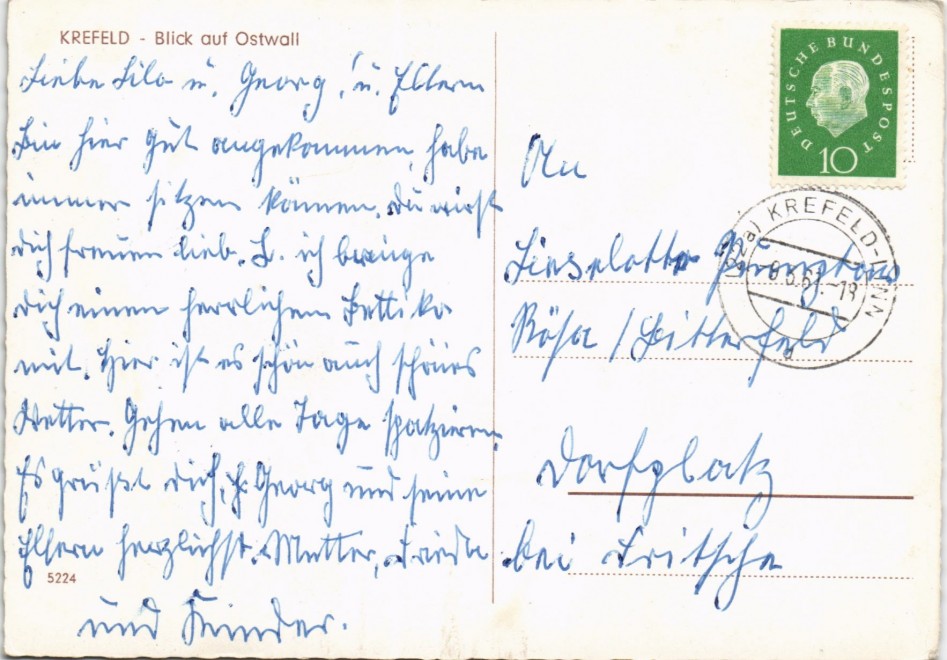 KREFELD - Blick auf Ostwall
Liebe Lilo u. Georg! u. Eltern
Bin hier gut angekommen, habe
immer sitzen können. Du wirst
dich freuen lieb. L. ich bringe
dich einen herrlichen
mit. Hier ist es schön auch schönes
Wetter. Gehen alle Tage spatzieren
Es grüßt dich, h. Georg und seine
Eltern herzlichst. Mutter, Frieda
und Kinder.
5224
DEUTSCHE BUNDESPOST
10
(22a) KREFELD-LINN
An
Lieselotte
Rösa / Bitterfeld
Dorfplatz
bei Fritsche